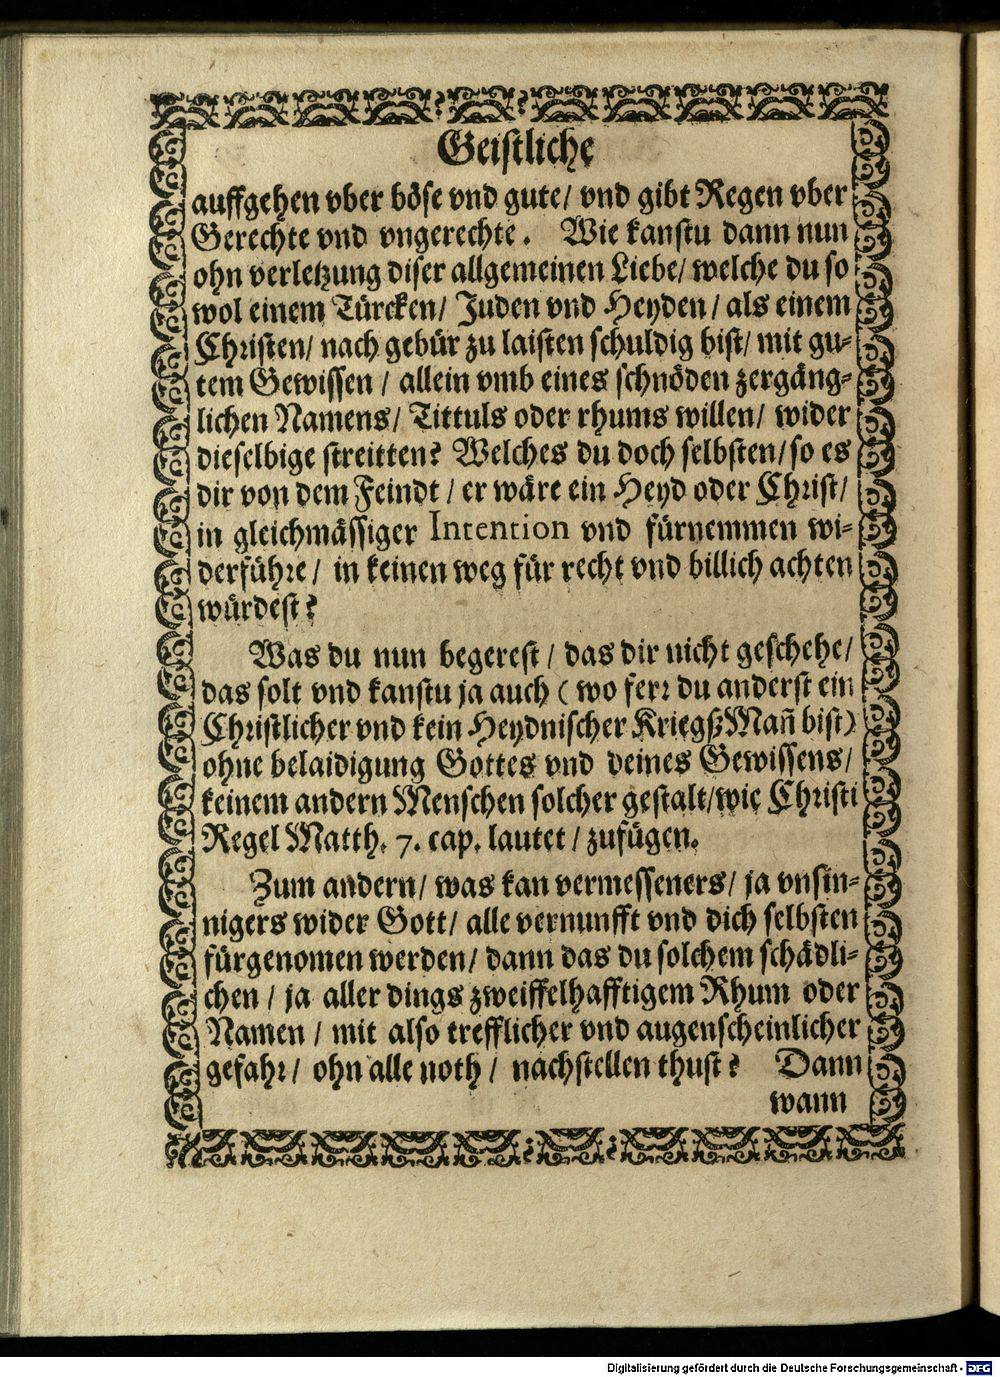 Geistliche
auffgehen vber böse vnd gute/ vnd gibt Regen vber
Gerechte vnd vngerechte. Wie kanstu dann nun
ohn verletzung diser allgemeinen Liebe/ welche du so
wol einem Türcken/ Juden vnd Heyden/ als einem
Christen/ nach gebür zu laisten schuldig bist/ mit gu-
tem Gewissen / allein vmb eines schnöden zergäng-
lichen Namens/ Tittuls oder rhums willen/ wider
dieselbige streitten? Welches du doch selbsten/ so es
dir von dem Feindt / er wäre ein Heyd oder Christ/
in gleichmässiger Intention vnd fürnemmen wi-
derführe / in keinen weg für recht vnd billich achten
würdest?
Was du nun begerest / das dir nicht geschehe/
das solt vnd kanstu ja auch ( wo ferr du anderst ein
Christlicher vnd kein Heydnischer KriegßMañ bist)
ohne belaidigung Gottes vnd deines Gewissens/
keinem andern Menschen solcher gestalt/wie Christi
Regel Matth. 7. cap. lautet / zufügen.
Zum andern/ was kan vermesseners/ ja vnsin-
nigers wider Gott/ alle vernunfft vnd dich selbsten
fürgenomen werden/ dann das du solchem schädli-
chen / ja aller dings zweiffelhafftigem Rhum oder
Namen / mit also trefflicher vnd augenscheinlicher
gefahr/ ohn alle noth / nachstellen thust? Dann
wann
Digitalisierung gefördert durch die Deutsche Forschungsgemeinschaft - DFG